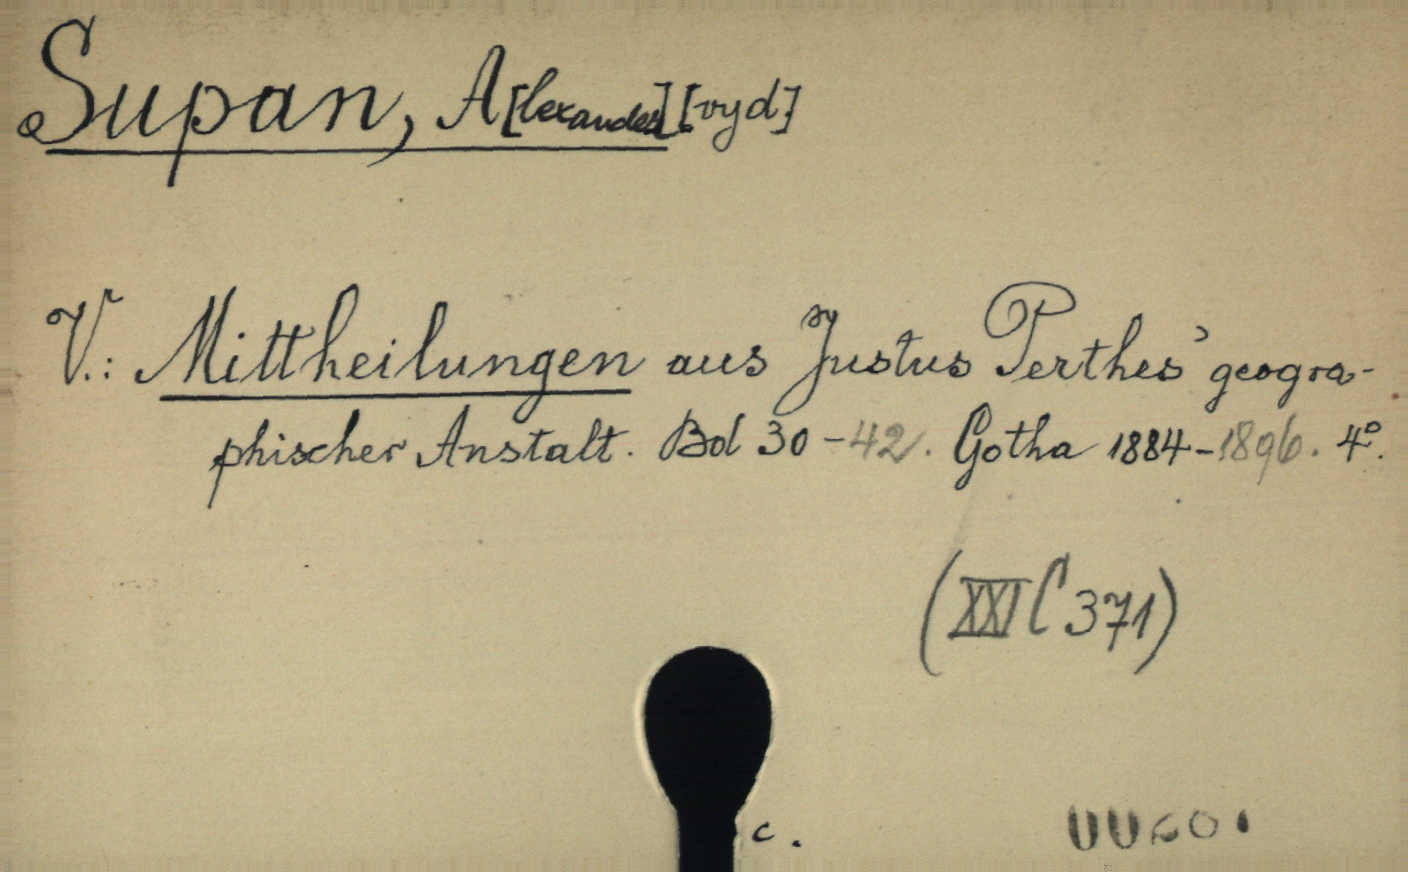 Supan, A[lexander] [vyd]
V.: Mittheilungen aus Justus Perthes' geogra-
phischer Anstalt. Bd 30-42. Gotha 1884-1896. 4°.
(XXI C 371)
c.